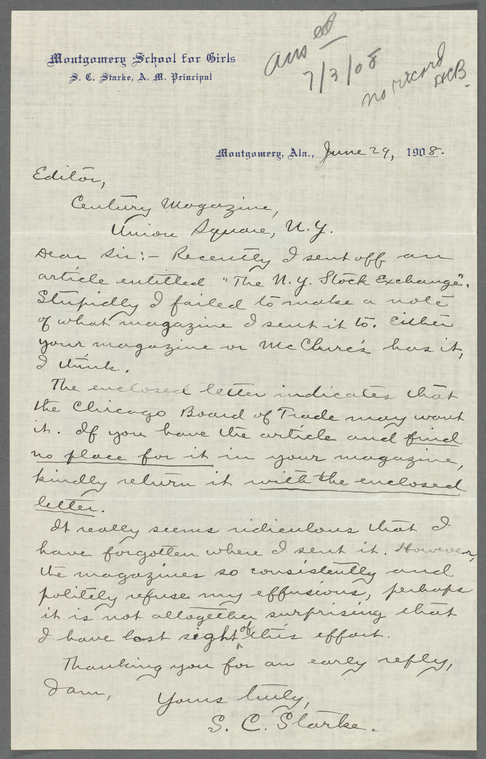 Montgomery School for Girls
S. C. Starke, A. M. Principal
ans ed
7/3/08
no record
Montgomery, Ala., June 29, 1908.
Editor,
Century Magazine,
Union Square, N.Y.
Dear Sir:- Recently I sent off an
article entitled "The N.Y. Stock Exchange".
Stupidly I failed to make a note
of what magazine I sent it to. Either
your magazine or McClure's has it,
I think.
The enclosed letter indicates that
the Chicago Board of Trade may want
it. If you have the article and find
no place for it in your magazine,
kindly return it with the enclosed
letter.
It really seems ridiculous that I
have forgotten where I sent it. However,
the magazines so consistently and
politely refuse my effusions, perhaps
it is not altogether surprising that
I have lost sight of this effort.
Thanking you for an early reply,
I am,
Yours truly,
S. C. Starke.